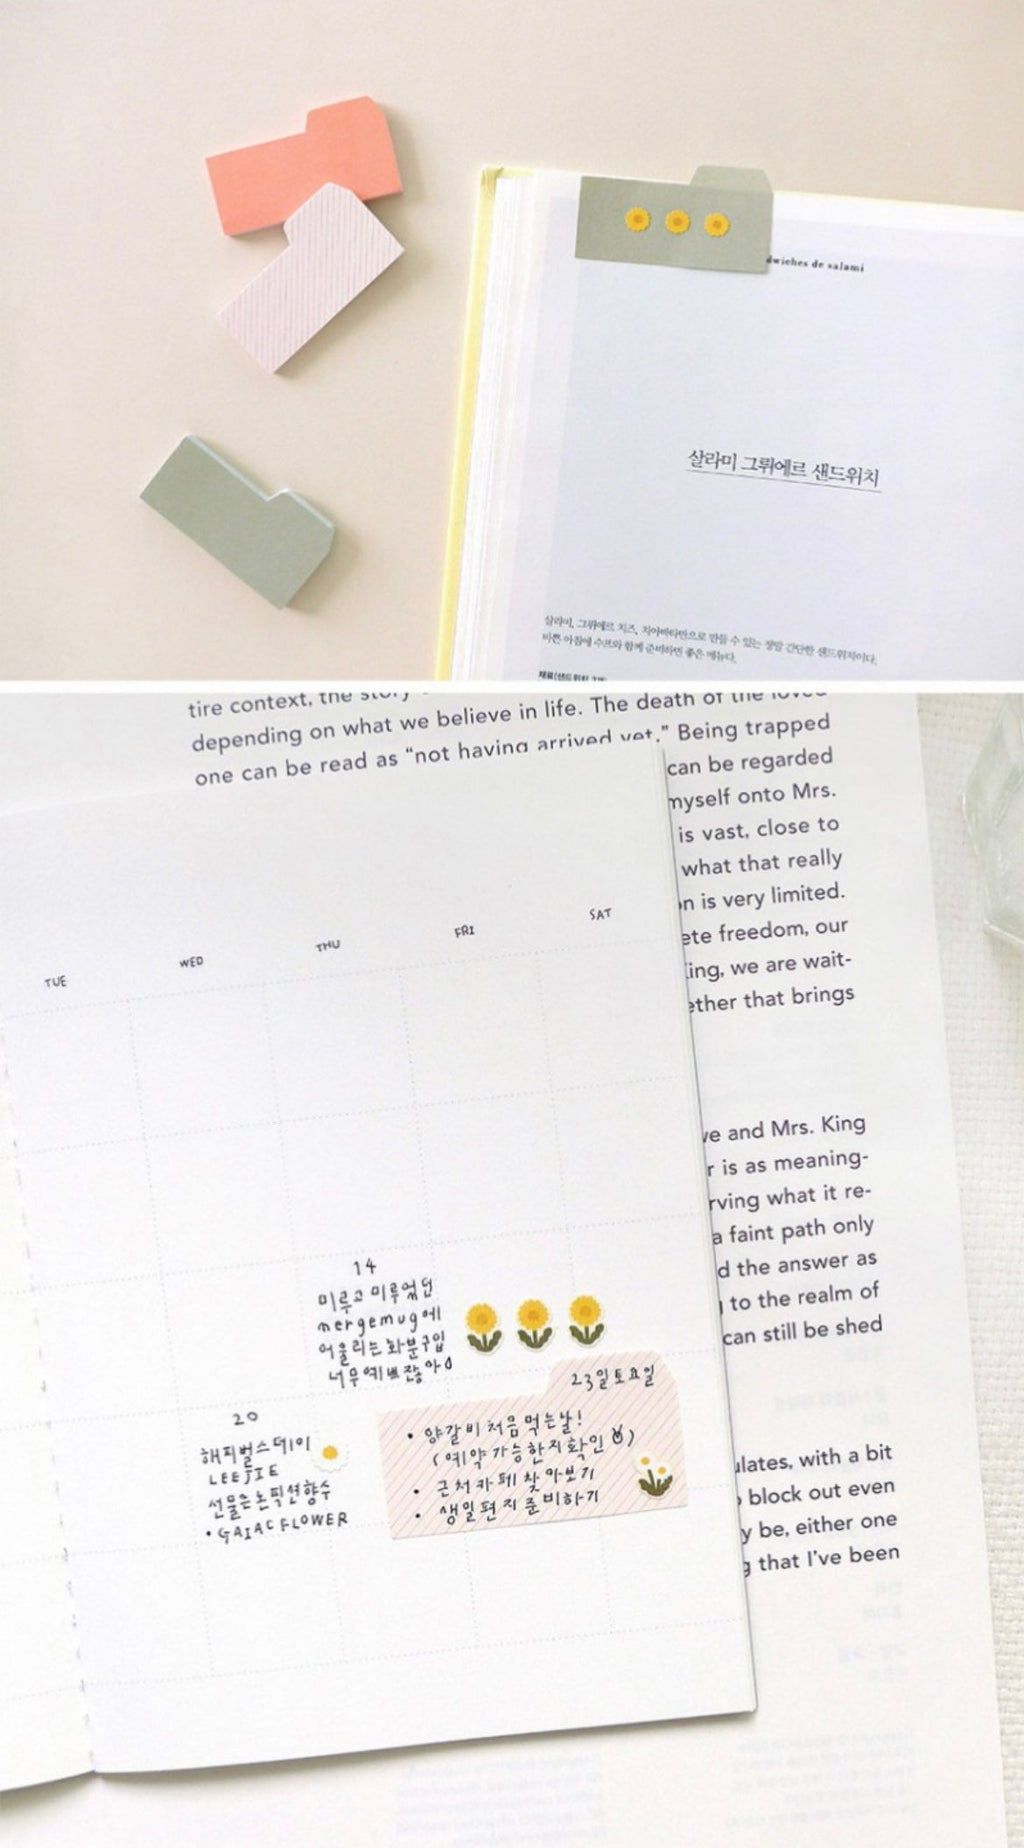 dwiches de salami
살라미 그뤼에르 샌드위치
살라미, 그뤼에르 치즈, 치아바타만으로 만들 수 있는 정말 간단한 샌드위치이다.
바쁜 아침에 수프와 함께 준비하면 좋은 메뉴다.
tire context, the story
depending on what we believe in life. The death of the loved
one can be read as “not having arrived yet.” Being trapped
can be regarded
myself onto Mrs.
is vast, close to
what that really
n is very limited.
ete freedom, our
ing, we are wait-
ether that brings
ve and Mrs. King
r is as meaning-
rving what it re-
a faint path only
d the answer as
to the realm of
can still be shed
ulates, with a bit
block out even
y be, either one
g that I’ve been
TUE WED THU FRI SAT
14
미루고 미루었던
mergemug에
어울리는 화분구입
너무예쁘잖아
20
해피벌스데이
LEEJIE
선물은논픽션향수
• GAIAC FLOWER
23일토요일
• 양갈비처음먹는날!
(예약가능한지확인)
• 근처카페찾아보기
• 생일편지준비하기